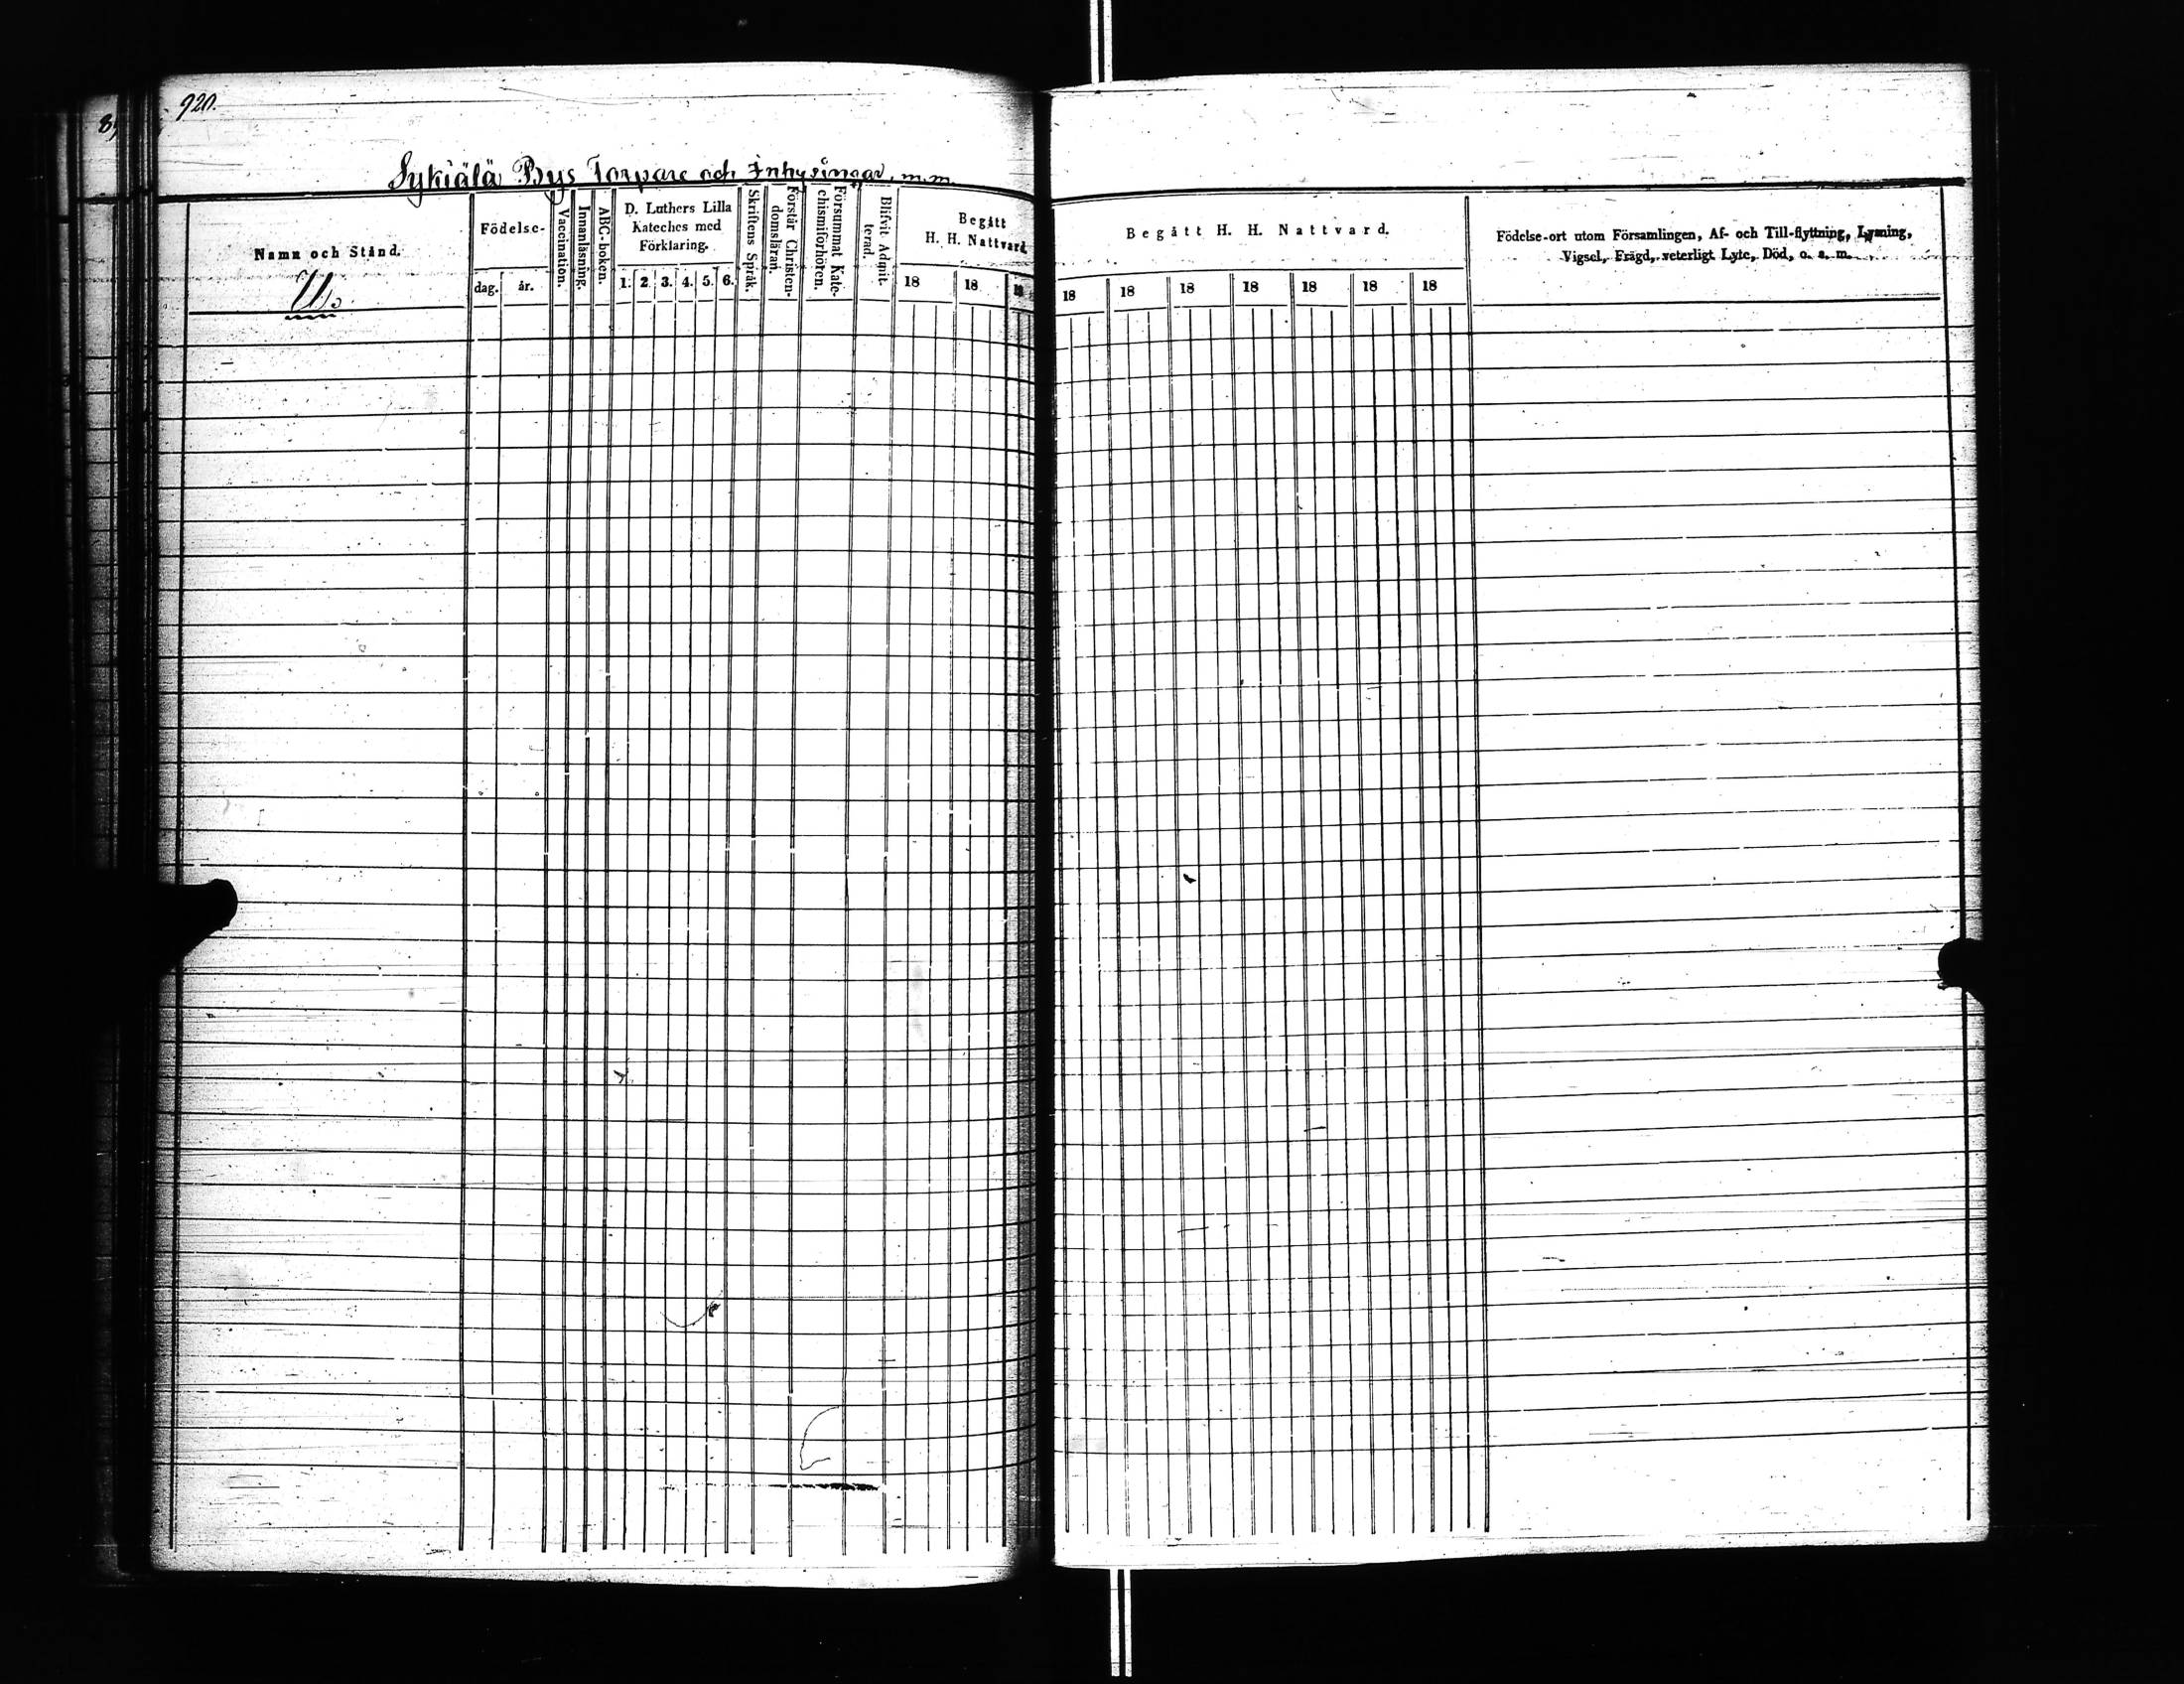 920.
Sykiälä Bys Torpare och Inhysingar, m.m.
Namn och Stånd.
Födelse-
dag.
år.
Vaccination.
Innanläsning.
ABC-boken.
D. Luthers Lilla
Kateches med
Förklaring.
1. 2. 3. 4. 5. 6.
Skriftens Språk.
Förstår Christen-
domsläran.
Försummat Kate-
chismiförhören.
Blifvit Admit-
terad.
Begått
H. H. Nattvard
18 18 18
Begått H. H. Nattvard.
18 18 18 18 18 18 18
Födelse-ort utom Församlingen, Af- och Till-flyttning, Lysning,
Vigsel, Frägd, veterligt Lyte, Död, o. s. m.